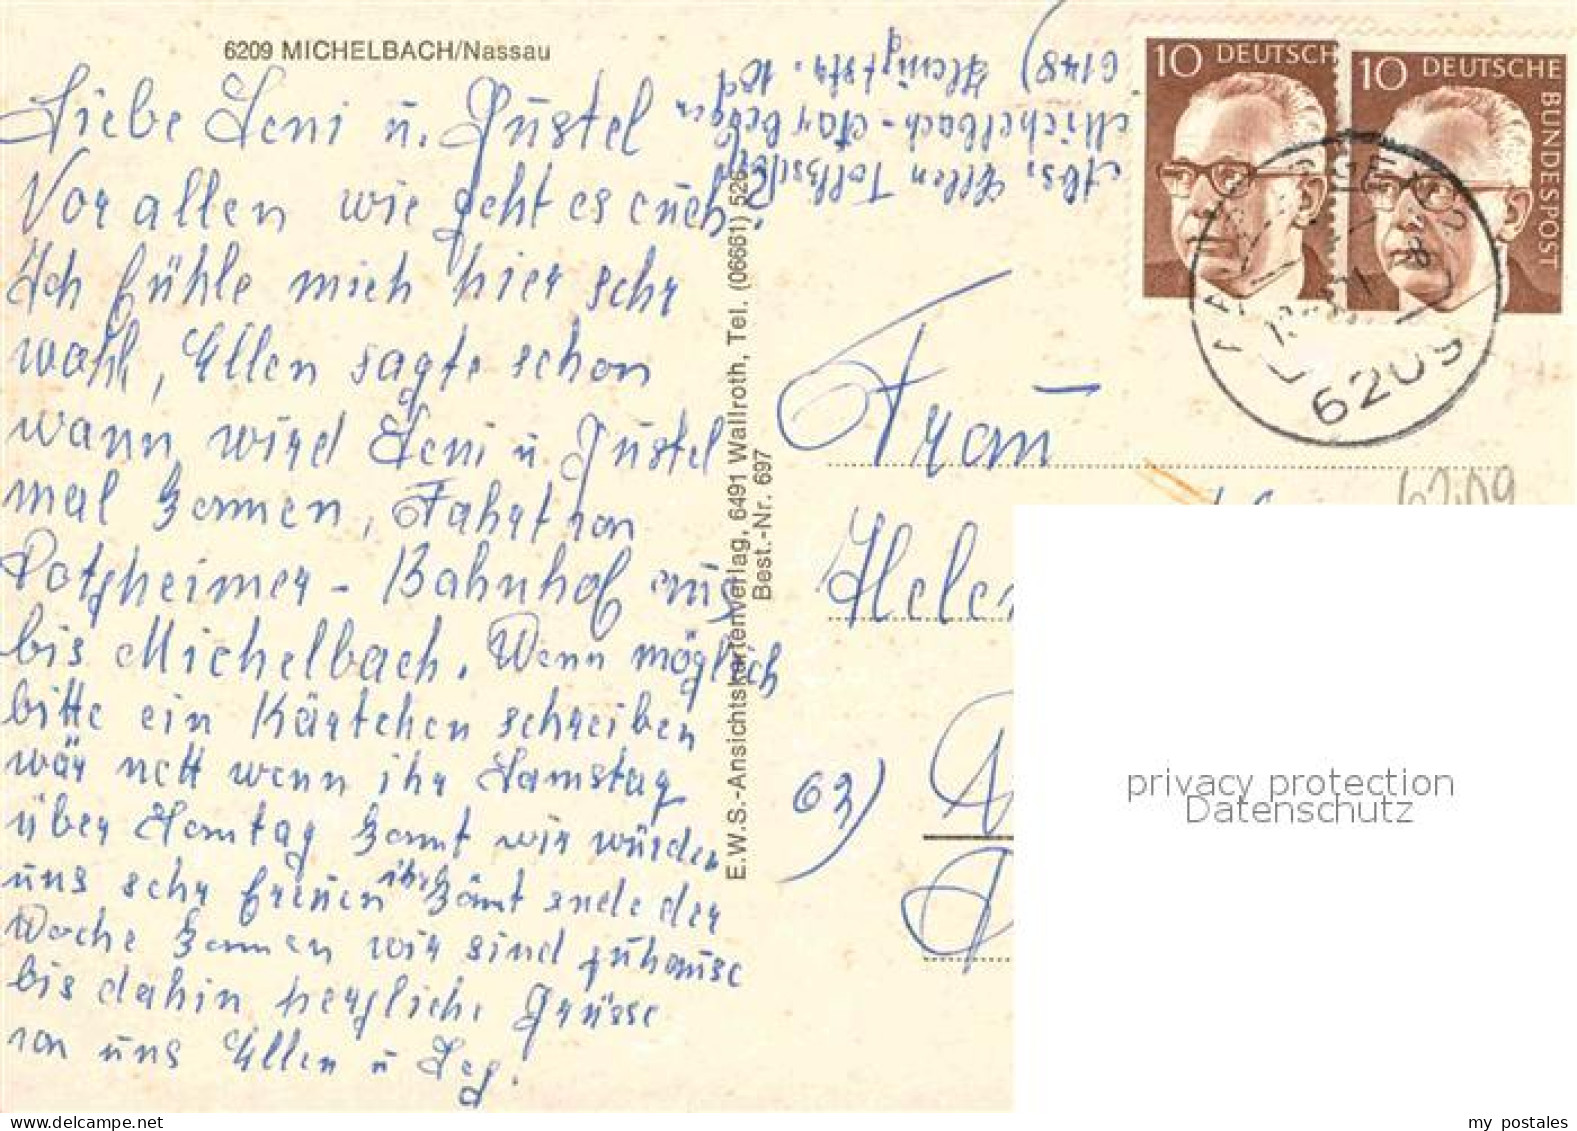 6209 MICHELBACH/Nassau
Liebe Leni u. Gustel
Vor allen wie geht es euch?
Ich fühle mich hier sehr
wohl, Ellen sagte schon
wann wird Leni u Gustel
mal kommen, Fahrt von
Dotzheimer - Bahnhof aus
bis Michelbach. Wenn möglich
bitte ein Kärtchen schreiben
wär nett wenn ihr Samstag
über Sontag komt wir würden
uns sehr freuen ihr kömt ende der
Woche kommen wir sind zuhause
bis dahin herzliche Grüsse
von uns Ellen u
E.W.S.-Ansichtskartenverlag, 6491 Wallroth, Tel. (06661) 526
Best.-Nr. 697
Abs. Ellen
Michelbach
10 DEUTSCH
10 DEUTSCHE
BUNDESPOST
6209
Frau
6209
Helen
62)
privacy protection
Datenschutz
my postales